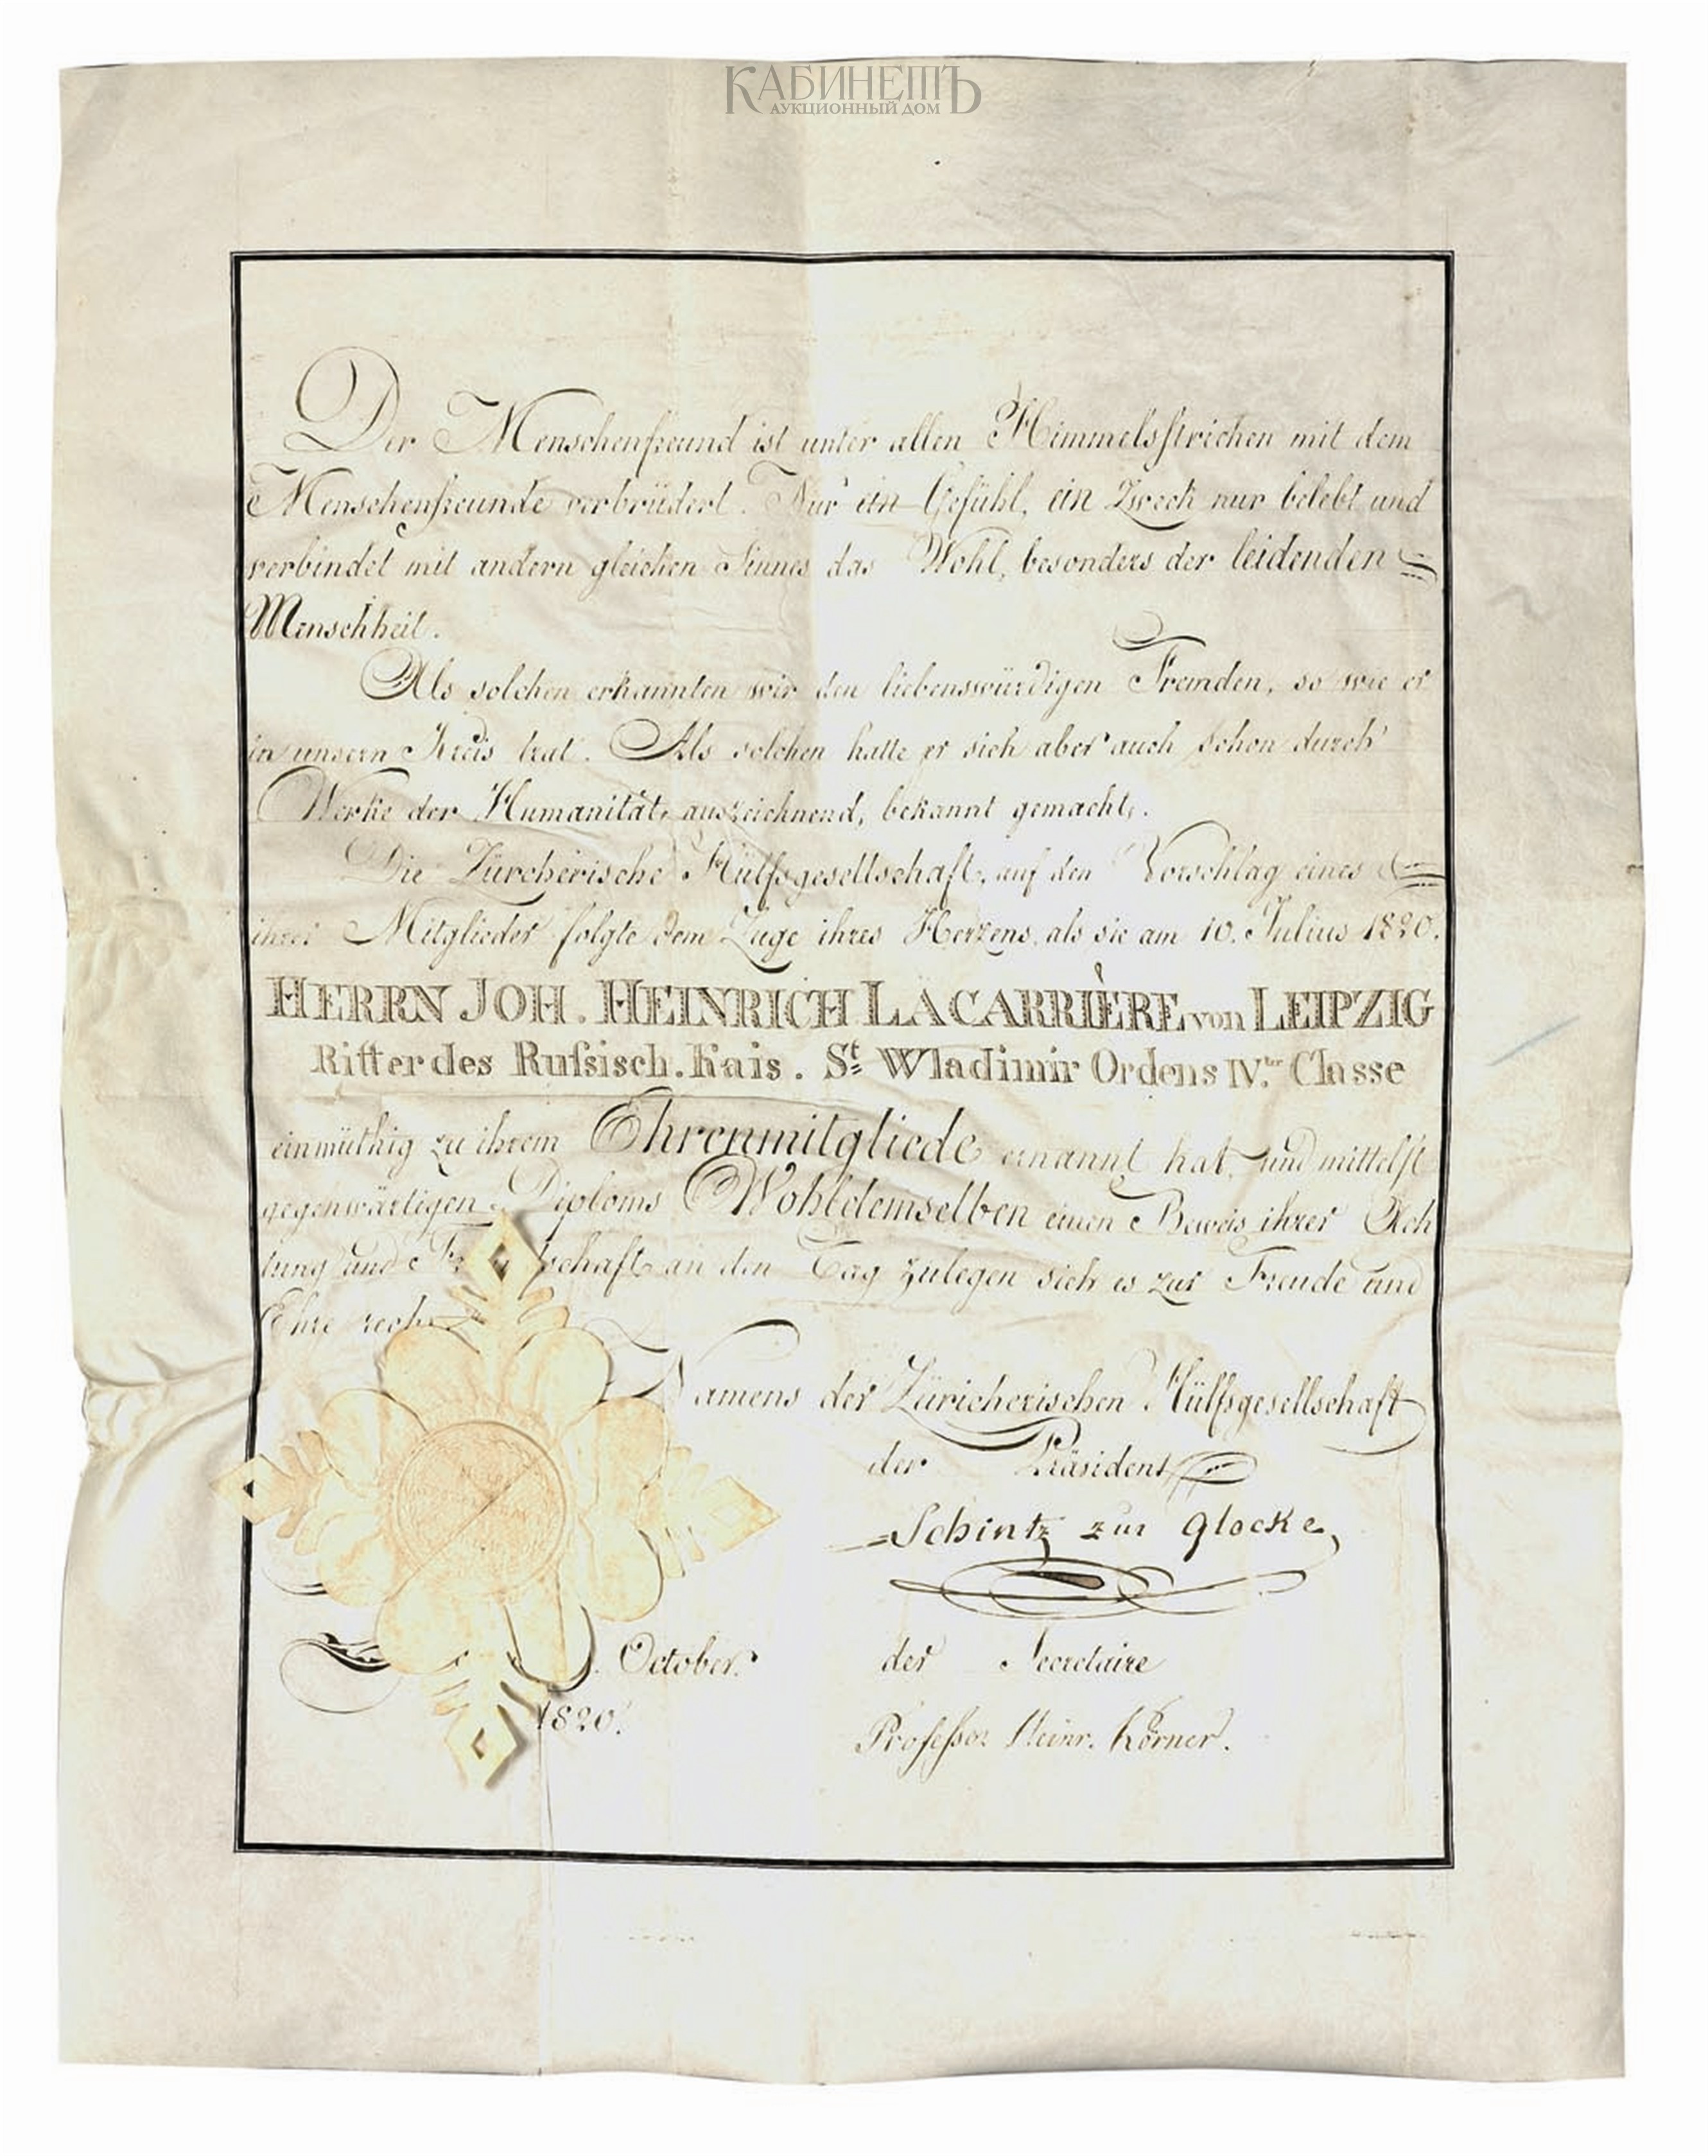 КАБИНЕТЪ
АУКЦИОННЫЙ ДОМ
Der Menschenfreund ist unter allen Himmelsstrichen mit dem
Menschenfreunde verbrüdert. Nur ein Gefühl, ein Zweck nur belebt und
verbindet mit andern gleichen Sinnes das Wohl, besonders der leidenden
Menschheit.
Als solchen erkannten wir den liebenswürdigen Fremden, so wie er
in unsern Kreis trat. Als solchen hatte er sich aber auch schon durch
Werke der Humanität, auszeichnend, bekannt gemacht.
Die Zürcherische Hülfsgesellschaft, auf den Vorschlag eines
ihrer Mitglieder folgte dem Zuge ihres Herzens, als sie am 10. Julius 1820.
HERRN JOH. HEINRICH LACARRIÈRE von LEIPZIG
Ritter des Rufsisch. Kais. St. Wladimir Ordens IV.ter Classe
einmüthig zu ihrem Ehrenmitgliede ernannt hat, und mittelst
gegenwärtigen Diploms Wohldemselben einen Beweis ihrer Ach
tung und schaft an den Tag zulegen sich es zur Freude und
Ehre
Namens der Züricherischen Hülfsgesellschaft
der Präsident
Schintz zur Glocke,
October.
1820.
der Secretaire
Professor Heinr. Körner.